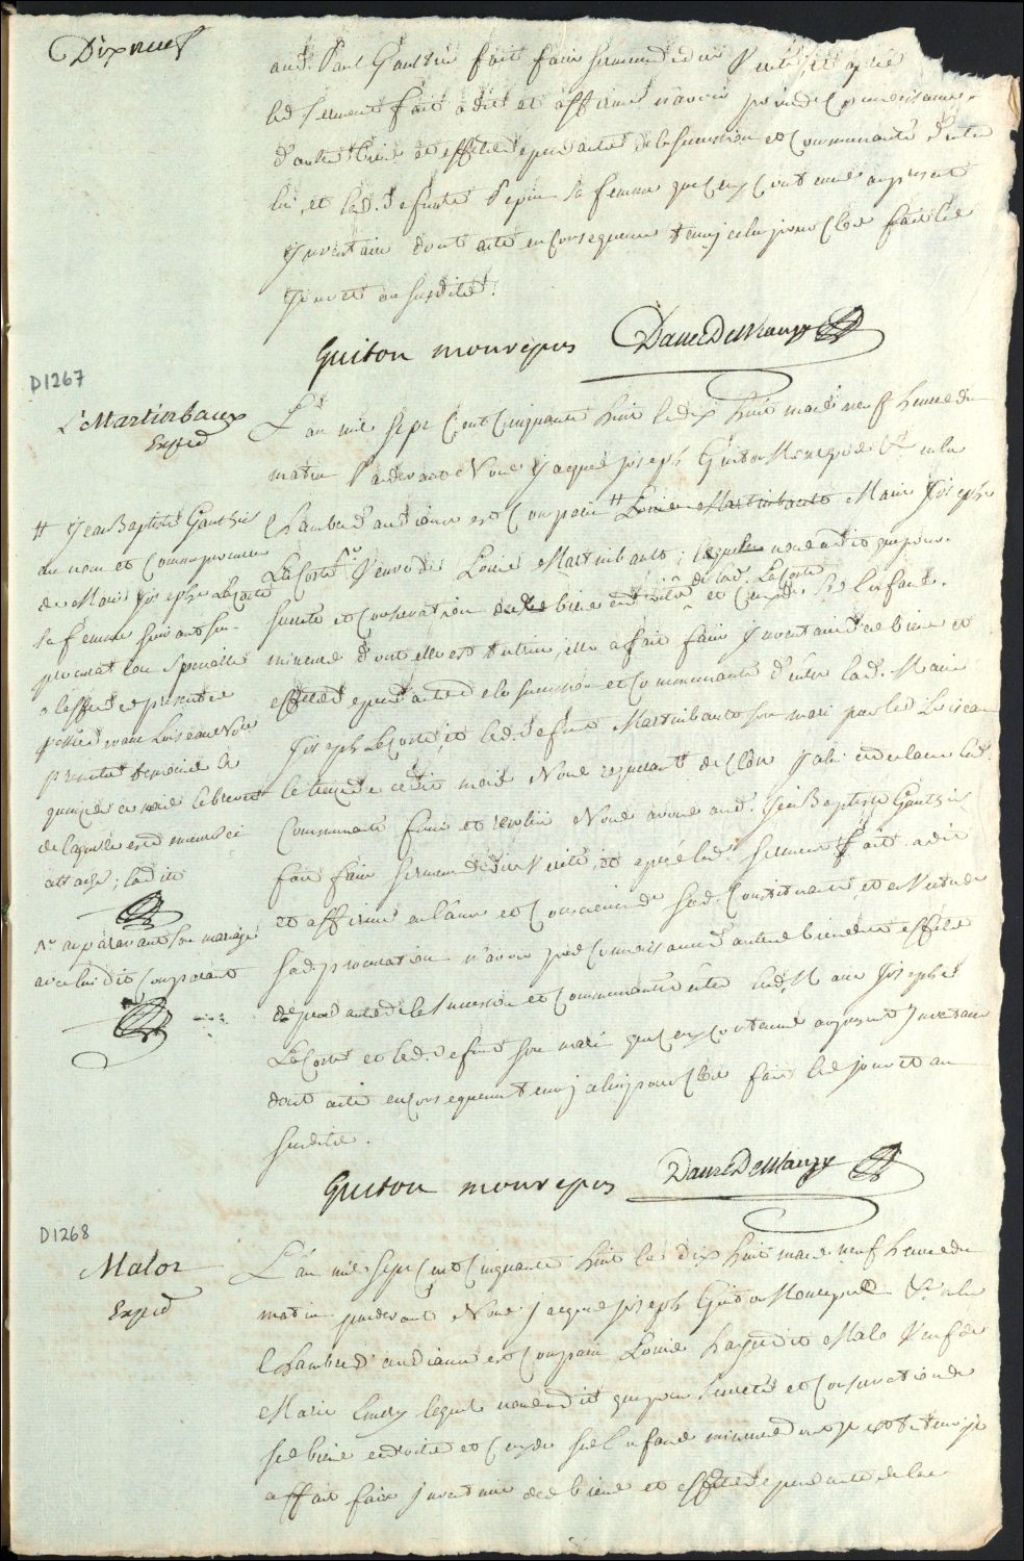 Dixneuf
aud. Paul Gaultier fait faire serment de dire verité, et après
led. serment fait a dit et affirmé n'avoir point de connoissance
d'autres biens et effets dependants de la succession et communauté d'entre
lui et lad. defunte Pepin sa femme que ceux contenus au present
Inventaire dont acte en consequence tenu icelui pour clos fait les
jour et an susdits.
Guiton monrepos DanreDeBlanzy
D1267
L. Martinbaux
Exped
L'an mil sept cent cinquante huit le dix huit mars neuf heures du
matin Pardevant Nous Jacques Joseph Guiton Monrepos &c en la
Chambre d'audience est comparu # Louise Martinbault Marie Josephe
LaCoste Ve de Louis Martinbault; lequel nous a dit que pour
sureté et conservation des biens et droits de lad. LaCoste et ceux de ses Enfans
mineurs dont elle est tutrice, elle a fait faire Inventaire des biens et
effets dependants de la succession et communauté d'entre lad. Marie
Josephe LaCoste et led. defunt Martinbault son mari par led. Loiseau
le treize de ce dit mois Nous requerant de clore
Communauté finie et Nous avons aud. Jean Baptiste Gautier
fait faire serment de dire verité, et après led. serment fait a dit
et affirmé en l'ame et conscience de sad. Constituante et en vertu de
sad. procuration n'avoir point connoissance d'autres biens et effets
dependants de la succession et communauté d'entre lad. Marie Josephe
LaCoste et led. defunt son mari que ceux contenus au present Inventaire
dont acte en consequence tenu icelui pour clos fait les jour et an
susdits.
Guiton monrepos DanreDeBlanzy
# Jean Baptiste Gautier
au nom et comme procureur
de Marie Josephe LaCoste
sa femme suivant sa
procuration speciale
a l'effet des presentes
passée devant Loiseau Nre
presents temoins le
quinze ce mois le brevet
de laquelle est demeuré ci
attaché; ladite
Ve auparavant son mariage
avec lui dit comparant
D1268
Malor
Exped
L'an mil sept cent cinquante huit le dix huit mars neuf heures du
matin pardevant Nous Jacques Joseph Guiton Monrepos &c en la
Chambre d'audience est comparu Louis dit Malo Veuf de
Marie Emery lequel nous a dit que pour sureté et conservation de
ses biens et droits et ceux de ses Enfans mineurs dont il est tuteur il
a fait faire inventaire des biens et effets dependants de la